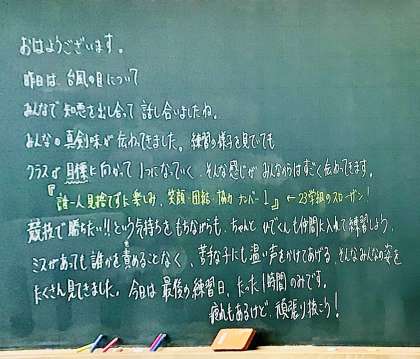 おはようございます。
昨日は、台風の目について
みんなで知恵を出し合って話し合いましたね。
みんなの真剣味が伝わってきました。練習の様子を見ていても
クラスが目標に向かって1つになっていく、そんな感じがみんなからはすごく伝わってきます。
『誰一人見捨てずに楽しみ、笑顔・団結・協力 ナンバー1』←23学級のスローガン！
競技で勝ちたい!!という気持ちをもちながらも、ちゃんと
くんも仲間に入れて練習しよう、
ミスがあっても誰かを責めることなく、苦手な子にも温い声をかけてあげる、そんなみんなの姿を
たくさん見てきました。今日は最後の練習日、たった1時間のみです。
疲れもあるけど、頑張り抜こう！